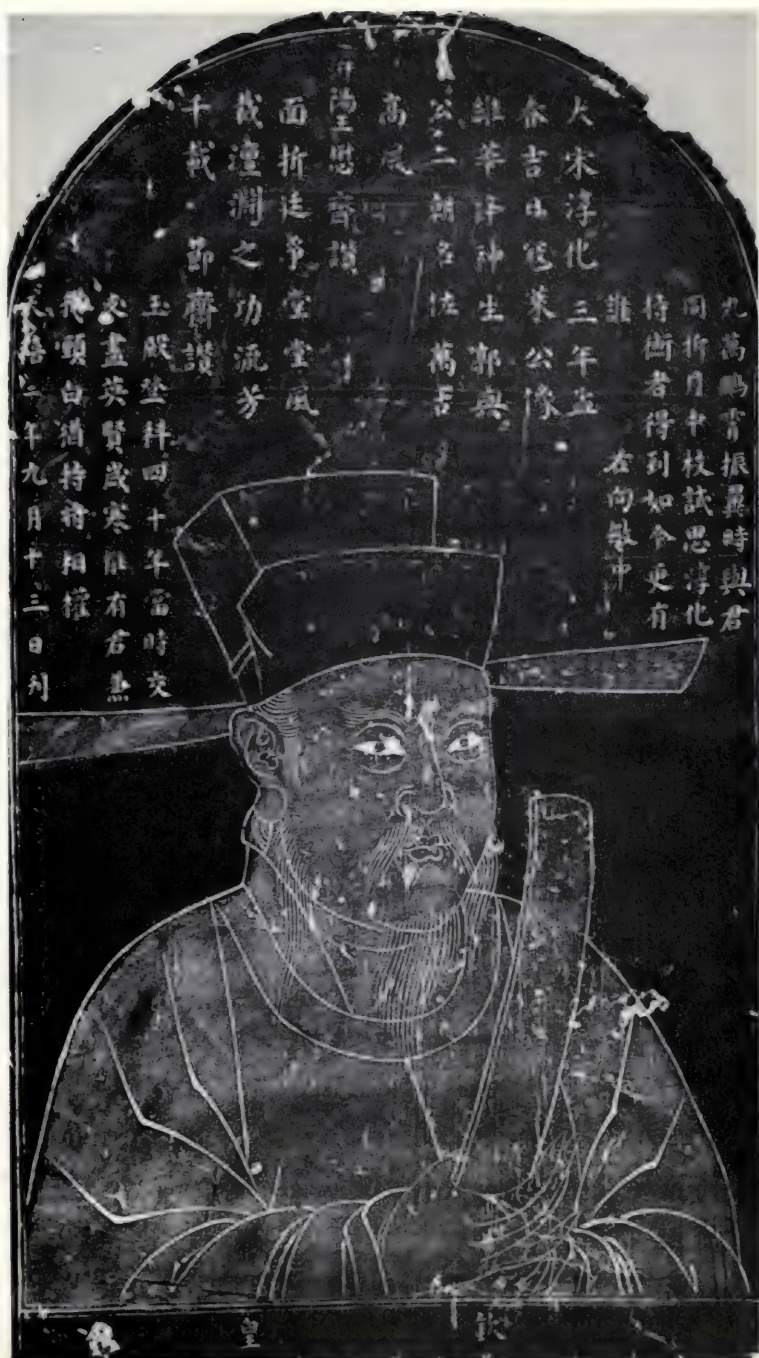 九萬鵬霄振翼時與君
同折月中枝試思淳化
持衡者得到如今更有
誰 右向敏中
大宋淳化三年孟
春吉日寇萊公像
維華降神生郭與
公二朝名佐萬古
高風
陽王思齊讚
面折廷爭堂堂風
裁澶淵之功流芳
千載 節齋讚
玉殿登科四十年當時交
友盡英賢歲寒唯有君兼
我頭白猶持將相權
天禧二年九月十三日刊
欽
皇